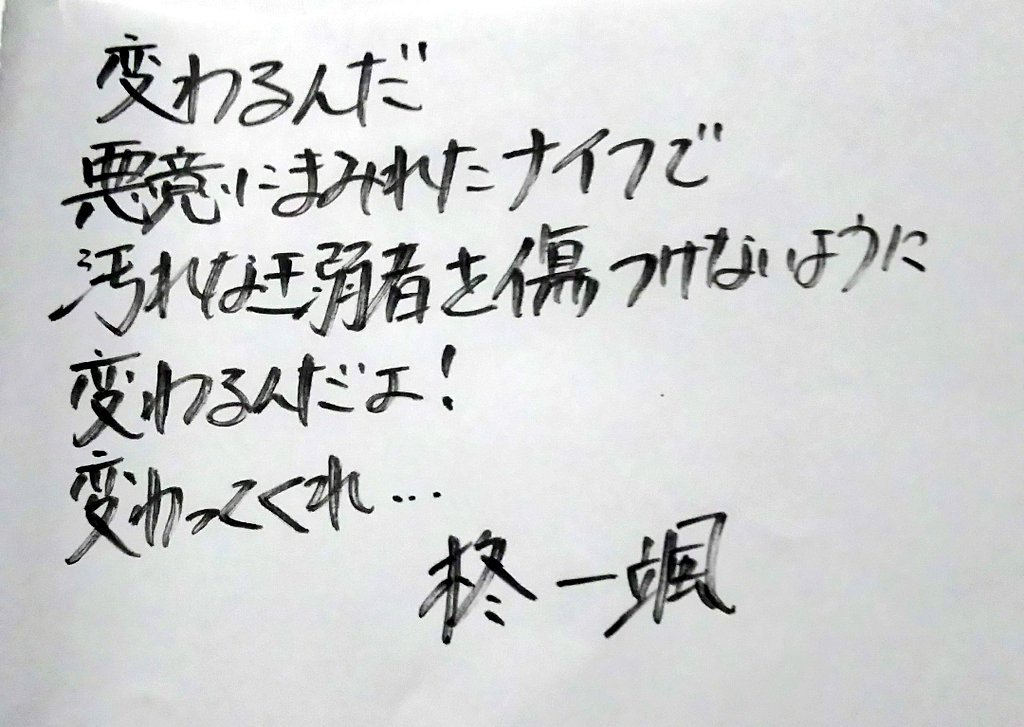 変わるんだ
悪意にまみれたナイフで
汚れなき弱者を傷つけないように
変わるんだよ!
変わってくれ…
柊一颯